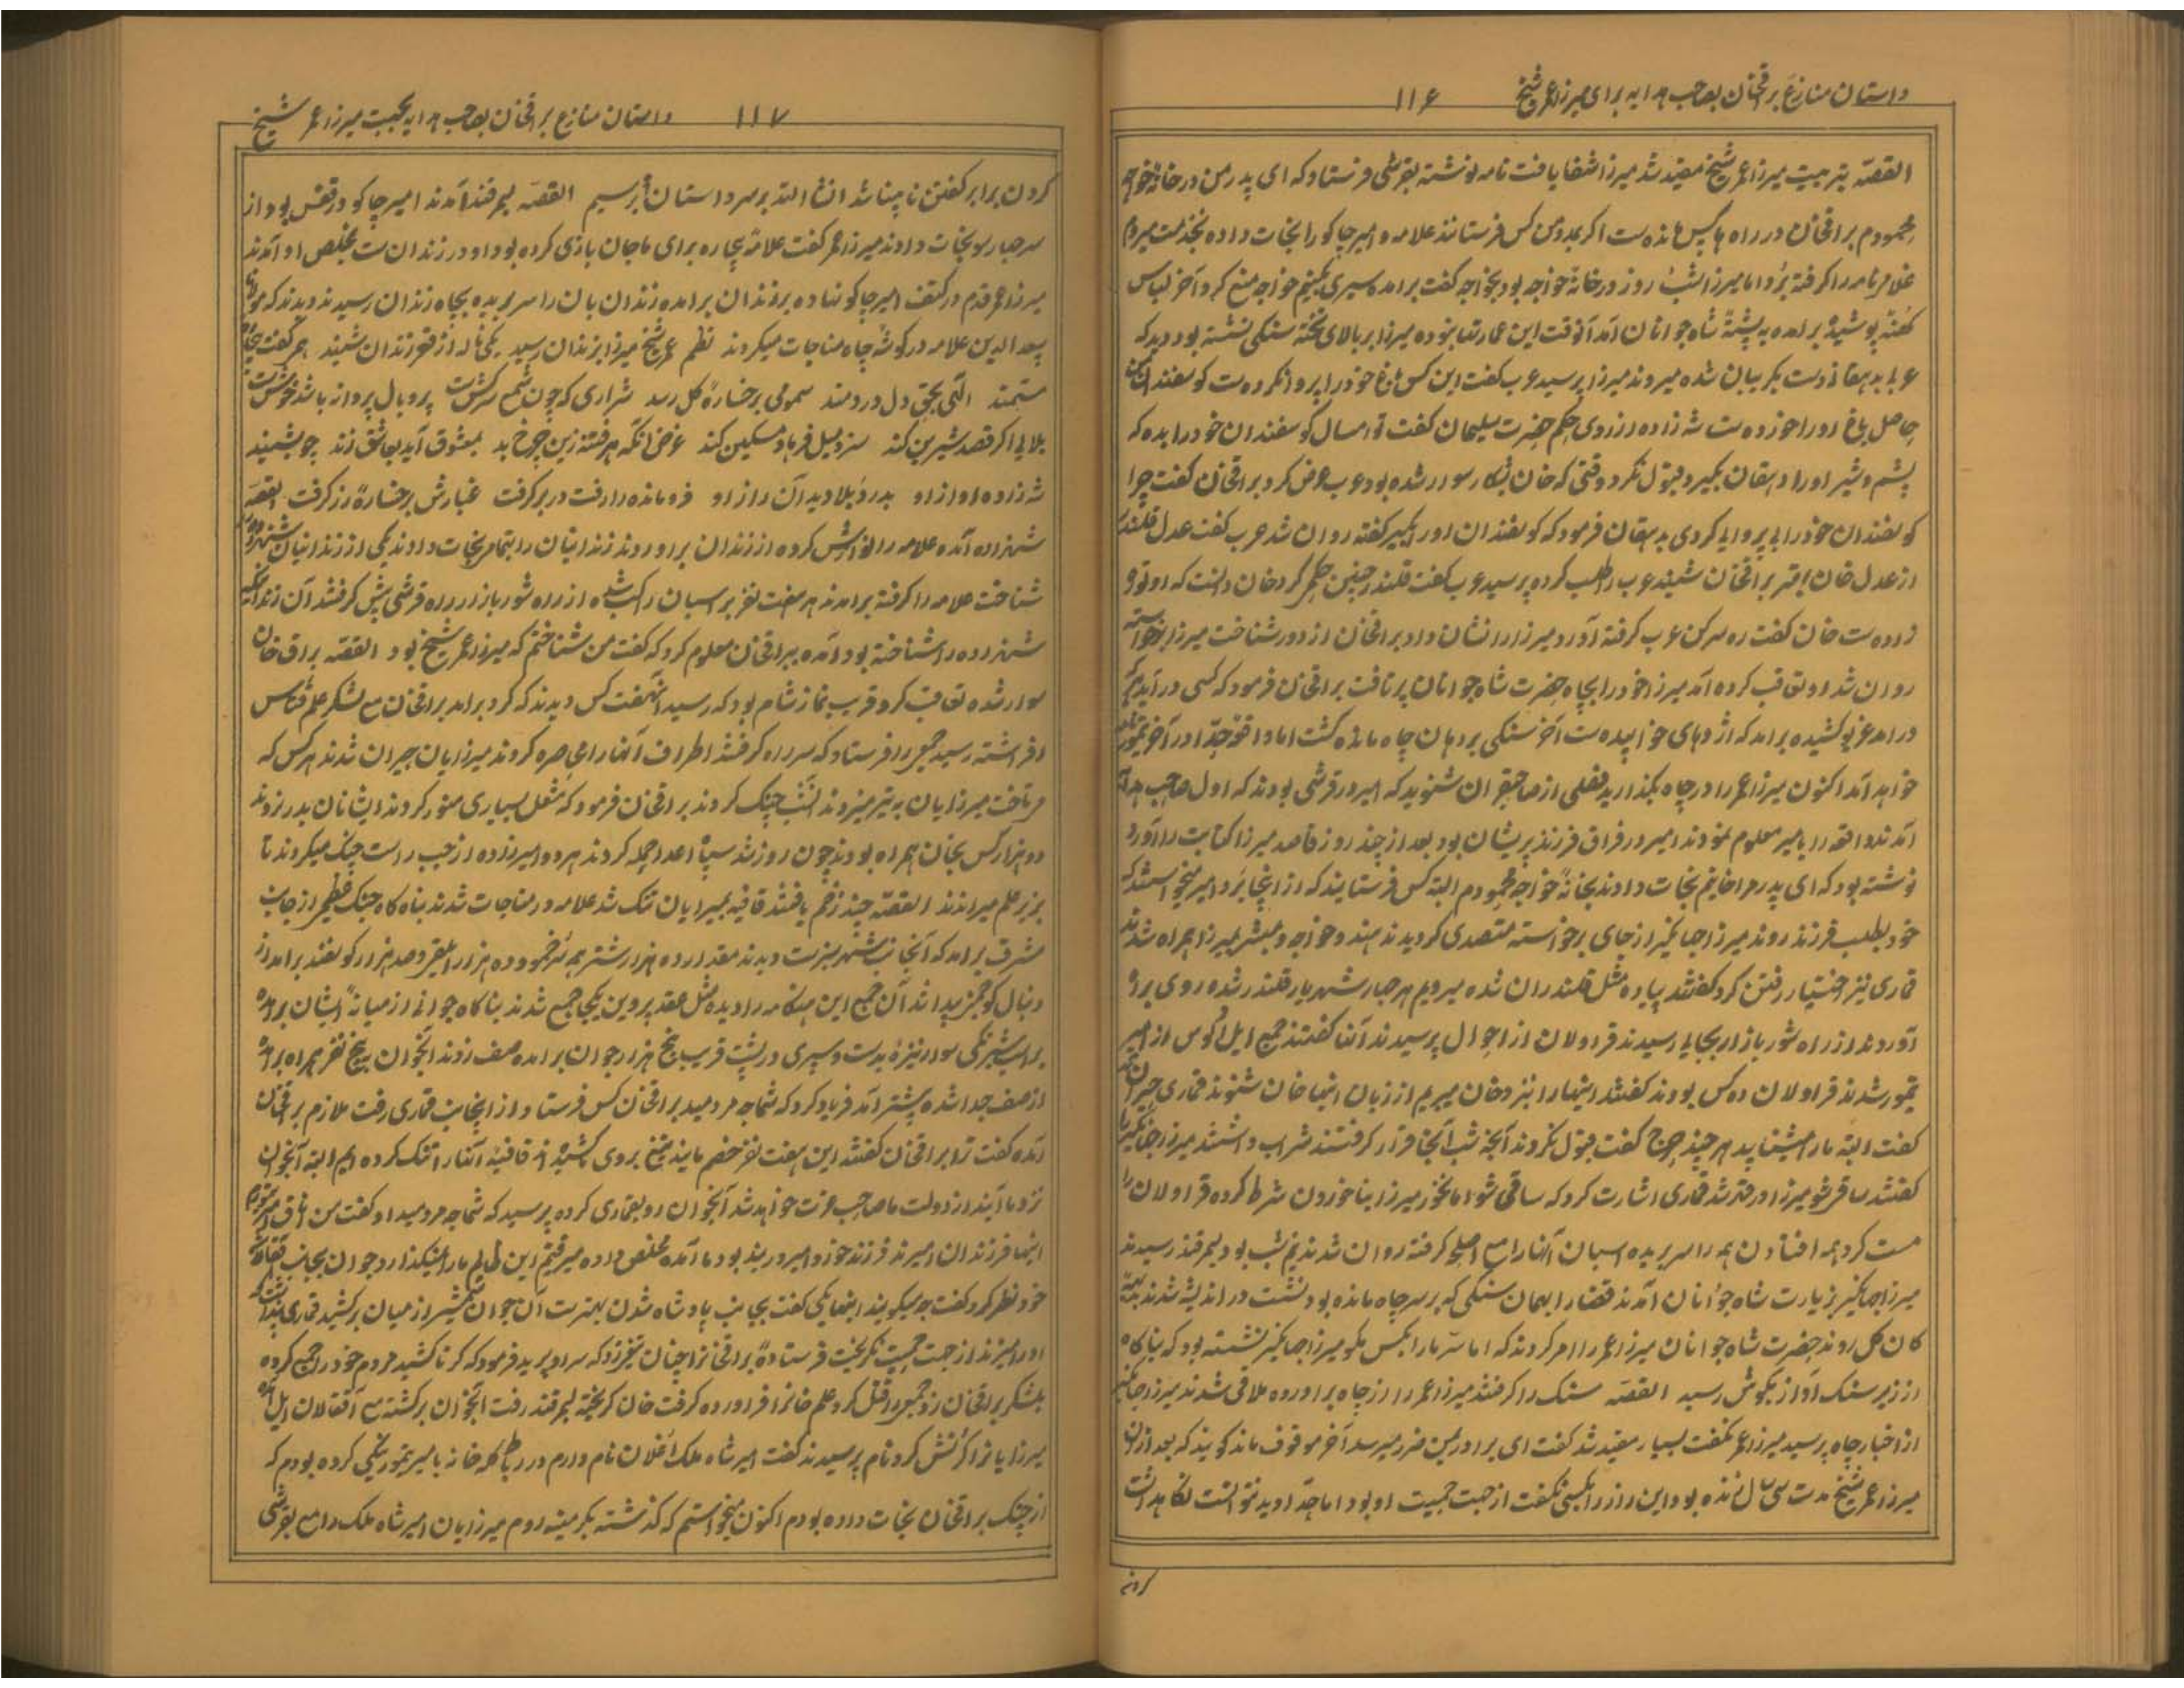 داستان منازع براقخان بصاحب هدایه برای میرزا عمر شیخ ۱۱۶
القصه بتربیت میرزا عمر شیخ مقید شد میرزا شفا یافت نامه نوشته بقرشی فرستاد که ای پدر من در خانهٔ خواجه
محمودم براقخان در راه پاس مانده است اکر بمن کس فرستانند علامه و امیر چاکو را نجات داده بخدمت میروم
غلام نامه را کرفته برد اما میرزا شب روز در خانهٔ خواجه بود بخواجه کفت برامده سیری بکنم خواجه منع کرد آخر لباس
کهنه پوشیده برامده به پشتهٔ شاه جوانان آمد آنوقت این عمارتها نبوده میرزا بر بالای تختهٔ سنکی نشسته بود دید که
عربا بدهقان دست بکریبان شده میروند میرزا پرسید عرب کفت این کس باغ خود را پروا نکرده است کوسفندان
حاصل باغ او را خورده است شهزاده از روی حکم حضرت سلیمان کفت تو امسال کوسفندان خود را بده که
پشم و شیر او را دهقان بکیرد قبول نکرد وقتی که خان بشکار سوار شده بود عرب عرض کرد براقخان کفت چرا
کوسفندان خود را بی پروایی کردی بدهقان فرمود که کوسفندان او را بکیر کفته روان شد عرب کفت عدل قلندر
از عدل خان بهتر براقخان شنید عرب را طلب کرده پرسید عرب کفت قلندر چنین حکم کرد خان دانست که او
زاده است خان کفت ره سر کن عرب کرفته آورد میرزا را نشان داد براقخان از دور شناخت میرزا برخواسته
روان شد او تعاقب کرده آمد میرزا خود را بچاه حضرت شاه جوانان پرتافت براقخان فرمود که کسی درآید
درامد غریو کشیده برامد که اژدهای خوابیده است آخر سنکی بر دهان چاه مانده کشت اما
خواهد آمد اکنون میرزا عمر را در چاه بکذارید فصلی از صاحبقران شنوید که امیر در قرشی بودند که اول صاحب هدایه
آمدند واقعه را بامیر معلوم نمودند امیر در فراق فرزند پریشان بود بعد از چند روز قاصد میرزا کتابت را آورد
نوشته بود که ای پدر مرا خانم نجات دادند بخانهٔ خواجه محمودم البته کس فرستایند که از اینجا برد امیر میخواستند که
خود بطلب فرزند روند میرزا جهانکیر از جای برخواسته متصدی کردیدند هندو خواجه و مبشر بمیرزا همراه شدند
قماری نیز اختیار رفتن کرد کفتند پیاده مثل قلندران شده میرویم هر چهار شهریار قلندر شده روی براه
آوردند از راه شور بازار بجایی رسیدند قراولان از احوال پرسیدند آنها کفتند جمیع ایل الوس از امیر
تیمور شدند قراولان ده کس بودند کفتند اینها را نزد خان میبریم از زبان اینها خان شنوند قماری
کفت البته ما را میشناسد هر چند کفت قبول نکردند آنچه شب آنجا قرار کرفتند شراب داشتند میرزا جهانکیر را
کفتند ساقی شو میرزا در قهر شد قماری اشارت کرد که ساقی شو اما نخور میرزا بنا خوردن شرط کرده قراولان را
مست کرد همه افتادن همه را سر بریده اسپان آنها را مع اصلحه کرفته روان شدند نیم شب بود بسمرقند رسیدند
میرزا جهانکیر بزیارت شاه جوانان آمدند قضا را بهمان سنکی که بر سر چاه مانده بود نشست در اندیشه شدند
کان کل روند حضرت شاه جوانان میرزا عمر را امر کردند که اما سر ما را بکس مکو میرزا جهانکیر نشسته بود که بناکاه
از زیر سنک آواز بکوش رسید القصه سنک را کرفتند میرزا عمر را از چاه براورده ملاقی شدند میرزا جهانکیر
از اخبار چاه پرسید میرزا عمر نکفت بسیار مقید شد کفت ای برادر بمن ضرر میرسد آخر موقوف ماند کویند که بعد ازان
میرزا عمر شیخ مدت سی سال زنده بود این راز را بکسی نکفت از جهت حمیت او بود اما نتوانست نکاهداشت
کردن
۱۱۷ داستان منازع براقخان بصاحب هدایه بجهت میرزا عمر شیخ
کردن برابر کفتن نابینا شد انشا الله بر سر داستان برسیم القصه بسمرقند آمدند امیر چاکو در قفس بود از
سر چهارسو نجات دادند میرزا عمر کفت علامه بیچاره برای ما جان بازی کرده بود او در زندان است بمخلص او آمدند
میرزا عمر قدم در کتف امیر چاکو نهاده بر زندان برامده زندان بان را سر بریده بچاه زندان رسیدند دیدند که مولانا
سعد الدین علامه در کوشهٔ چاه مناجات میکردند نظم عمر شیخ میرزا بزندان رسید یکی ناله از قعر زندان شنید
مستمند الهی بحق دل دردمند سمومی برخسارهٔ کل رسد شراری که چون شمع سرکش است پر و بال پروانه باشد خوش است
بلایی اکر قصد شیرین کند سزد میل فرهاد مسکین کند غرض آنکه هر فتنه زین چرخ بد بمعشوق آید بعاشق زند چو بشنید
شهزاده آواز او بدرد بلا دید آن راز او فرو مانده را رفت در بر کرفت غبارش برخسارهٔ زر کرفت القصه
شهزاده آمده علامه را نوازش کرده از زندان براوردند زندانیان را بتمام نجات دادند یکی از زندانیان شهزاده را
شناخت علامه را کرفته برامدند هر هفت نفر بر اسپان راکب شده از راه شور بازار راه قرشی پیش کرفتند آن زندانی که
شهزاده را شناخته بود آمده ببراقخان معلوم کرد که کفت من شناختم که میرزا عمر شیخ بود القصه براق خان
سوار شده تعاقب کرد قریب نماز شام بود که رسید آن هفت کس دیدند که کرد برامد براقخان مع لشکر علم قتاس
افراشته رسید جمیع را فرستاد که سر راه کرفتند اطراف آنها را محاصره کردند میرزایان حیران شدند هر کس که
میتاخت میرزایان به تیر میزدند آنشب جنک کردند براقخان فرمود که مشعل بسیاری منور کردند
دو هزار کس بخان همراه بودند چون روز شد سپاه اعدا حمله کردند هر دو امیرزاده از چپ راست جنک میکردند تا
بزیر علم میراندند القصه چند زخم یافتند قافیه بمیرزایان تنک شد علامه در مناجات شدند بناکاه جنک از جانب
مشرق برامد که آنجانب شهر سبز است دیدند مقدار ده هزار شتر همه سرخ مو و ده هزار و صد هزار کوسفند برامد از
دنبال کوچ پیدا شد آن جمع این هنکامه را دیده مثل عقد پروین یکجا جمع شدند بناکاه جوانی از میانهٔ ایشان برامده
بر اسپ سوار نیزه بدست و سپری در پشت قریب پنج هزار جوان برامده صف زدند آنجوان پنج نفر همراه برامده
از صف جدا شده پیشتر آمد فریاد کرد که شما چه مردمید براقخان کس فرستاد از اینجانب قماری رفت ملازم براقخان
آمده کفت ترا براقخان کفتند این هفت نفر خصم مایند تیغ بروی ما کشیده اند قافیه آنها را تنک کرده ایم البته آنجوان
نزد ما آیند از دولت ما صاحب عزت خواهد شد آنجوان رو بقماری کرده پرسید که شما چه مردمید او کفت من قماری
اینها فرزندان امیرند فرزند خورد امیر در بند بود ما آمده مخلص داده میرفتیم این ظالم ما را نمیکذارد جوان بجانب
خود نظر کرد کفت چه میکویید اینها یکی کفت بجانب پادشاه شدن بهتر است آن جوان شمشیر از میان برکشید قماری
او را میزند از جهت حمیت نکریخت فرستادهٔ براقخان را چنان بزد که سر او پرید فرمود که کرنا کشید مردم خود را جمع کرده
بلشکر براقخان زد جمیع را قتل کرد علم خان را فراورده کرفت خان کریخته بسمرقند رفت آنجوان برکشته مع آقسقالان ایل آمده
میرزایان را کرنش کرد نام پرسیدند کفت امیر شاه ملک اغلان نام دارم در رباط کله خانه بامیر تیمور نیکی کرده بودم که
از جنک براقخان نجات داده بودم اکنون میخواستم که کذشته بکرمینه روم میرزایان امیر شاه ملک را مع بقرشی